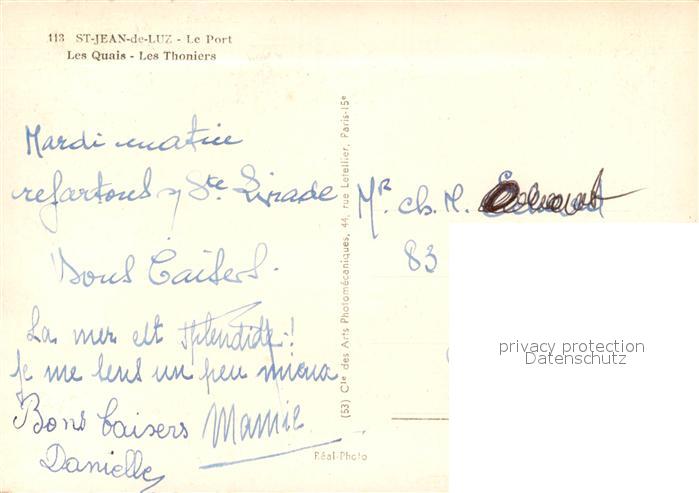 113 ST-JEAN-de-LUZ - Le Port
Les Quais - Les Thoniers
Mardi matin
repartons Ste. Livrade
Bons Baisers.
La mer est splendide!
je me sens un peu mieux
Bons baisers Mamie
Danielle
(53) Cie des Arts Photomécaniques, 44, rue Letellier, Paris-15e
Réal-Photo
Mr. ch. M.
83
privacy protection
Datenschutz